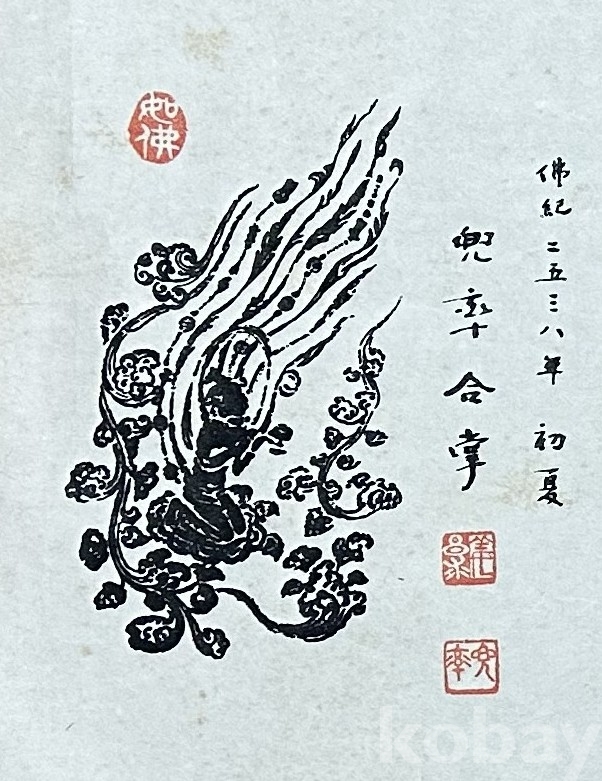 佛紀 二五三八年 初夏
兜率合掌
如佛
兜率
kobay